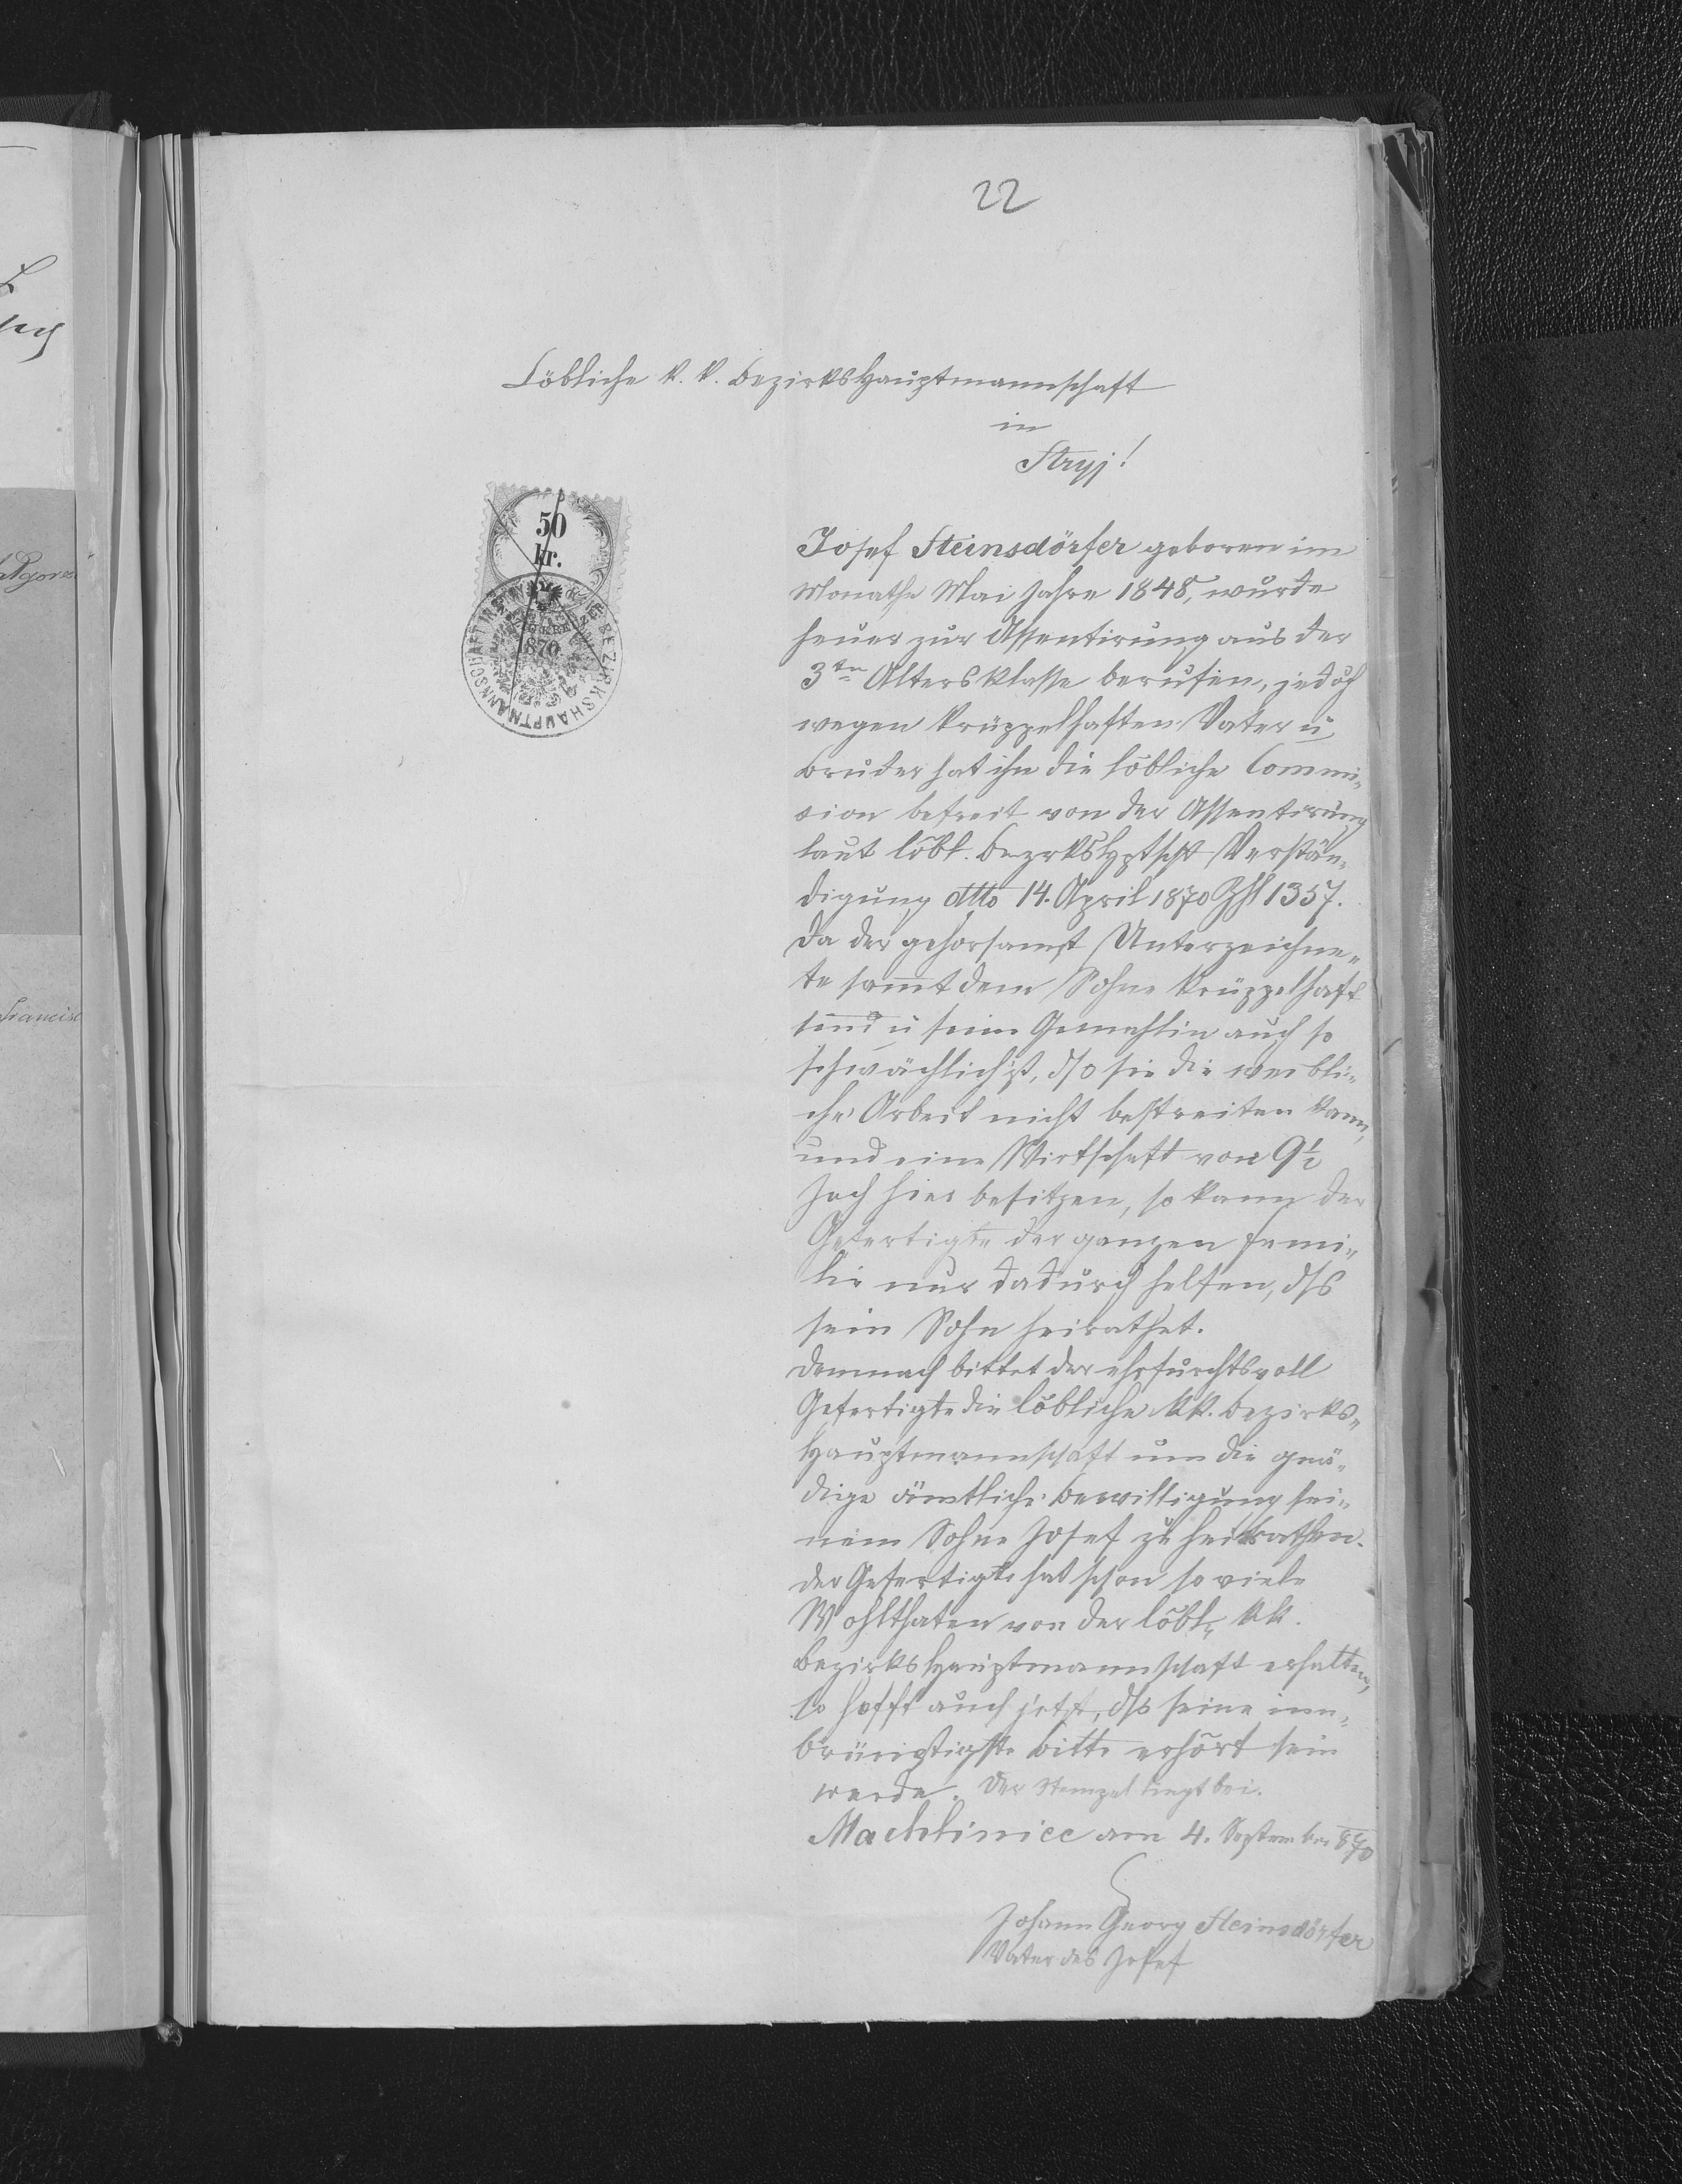 22
Löbliche k. k. Bezirkshauptmannschaft
in
Stryj!
50
kr.
1870
K. K. BEZIRKSHAUPTMANNSCHAFT IN
Josef Steinsdörfer geboren im
Monathe Mai Jahre 1848, wurde
heuer zur Assentirung aus der
3ten Altersklasse berufen, jedoch
wegen krüppelhaften Vater u
Bruder hat ihn die löbliche Commi„
sion befreit von der Assentirung
laut löbl. Bezrkshptscht Verstän„
digung dtto 14. April 1870 Zhl 1357.
Da der gehorsamst Unterzeichne„
te sammt dem Sohne krüppelhaft
sind u seine Gemahlin auch so
schwächlich ist, dß sie die weibli„
che Arbeit nicht bestreiten kann,
und eine Wirtschaft von 9½
Joch hier besitzen, so kann der
Gefertigte der ganzen Fami„
lie nur dadurch helfen, dß
sein Sohn heirathet.
Demnach bittet der ehrfurchtsvoll
Gefertigte die löbliche kk. Bezirks„
Hauptmannschaft um die gnä„
dige ämtliche Bewilligung sei„
nem Sohne Josef zu heirathen.
Der Gefertigte hat schon so viele
Wohlthaten von der löbl. kk.
Bezirkshauptmannschaft erhalten,
so hofft auch jetzt, dß seine inn„
brünstigste Bitte erhört sein
werde. Der Stempel liegt bei.
Machlinice am 4. September 870
Johann Georg Steinsdörfer
Vater des Josef